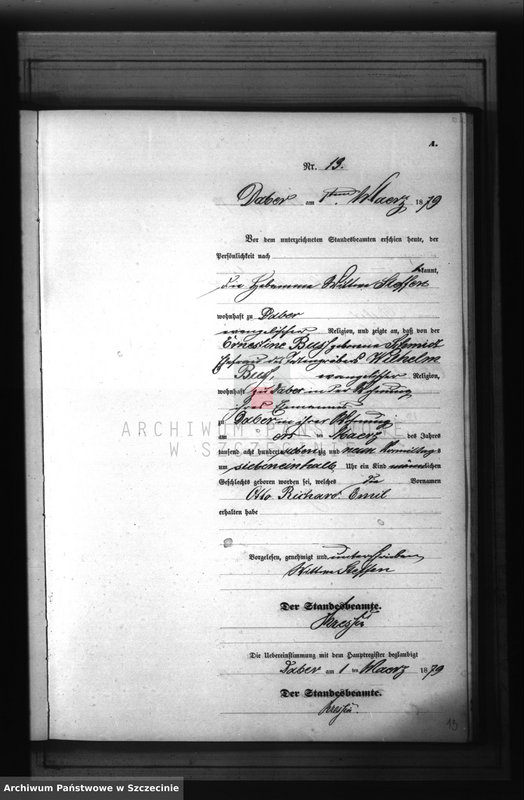 A.
Nr. 13.
Daber am 1ten Maerz 1879
Vor dem unterzeichneten Standesbeamten erschien heute, der
Persönlichkeit nach
kannt,
die Hebamme Wittwe Steffen
wohnhaft zu Daber
evangelischer Religion, und zeigte an, daß von der
Ernestine Bush geborene Schmidt
Ehefrau des Wilhelm
Bush, evangelischer Religion,
wohnhaft zu Daber in der Wohnung
ihres Ehemanns
zu Daber in ihrer Wohnung
am ten Maerz des Jahres
tausend acht hundert siebenzig und neun Vormittags
um siebeneinhalb Uhr ein Kind männlichen
Geschlechts geboren worden sei, welches die Vornamen
Otto Richard Emil
erhalten habe
Vorgelesen, genehmigt und unterschrieben
Wittwe Steffen
Der Standesbeamte.
Die Uebereinstimmung mit dem Hauptregister beglaubigt
Daber am 1 ten Maerz 1879
Der Standesbeamte.
ARCHIWUM PAŃSTWOWE
W SZCZECINIE
Archiwum Państwowe w Szczecinie